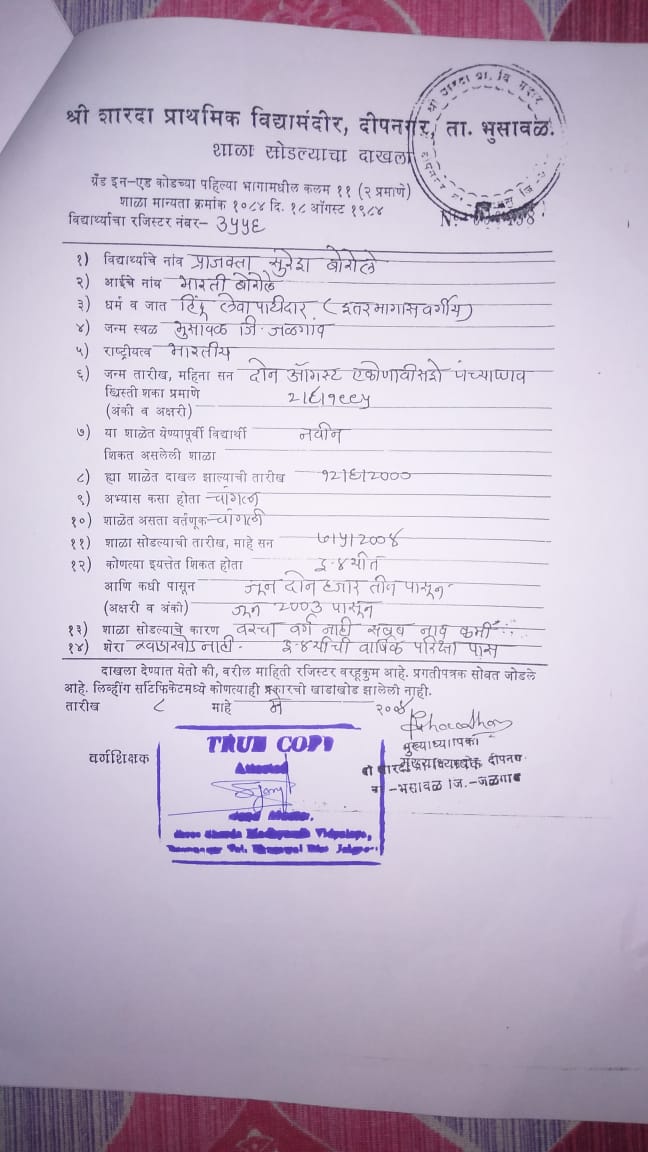 श्री शारदा प्राथमिक विद्यामंदीर, दीपनगर, ता. भुसावळ.
शाळा सोडल्याचा दाखला
ग्रँड इन-एड कोडच्या पहिल्या भागामधील कलम ११ (२ प्रमाणे)
शाळा मान्यता क्रमांक १०८४ दि. १८ ऑगस्ट १९८४
विद्यार्थ्याचा रजिस्टर नंबर- ३५५६
१) विद्यार्थ्याचे नांव प्राजक्ता सुरेश बोरोले
२) आईचे नांव भारती बोरोले
३) धर्म व जात हिंदू लेवा पाटीदार (इतर मागास वर्गीय)
४) जन्म स्थळ भुसावळ जि. जळगांव
५) राष्ट्रीयत्व भारतीय
६) जन्म तारीख, महिना सन दोन ऑगस्ट एकोणावीसशे पंच्याण्णव
ख्रिस्ती शका प्रमाणे २।८।१९९५
(अंकी व अक्षरी)
७) या शाळेत येण्यापूर्वी विद्यार्थी नवीन
शिकत असलेली शाळा
८) ह्या शाळेत दाखल झाल्याची तारीख १२।६।२०००
९) अभ्यास कसा होता चांगला
१०) शाळेत असता वर्तणूक चांगली
११) शाळा सोडल्याची तारीख, माहे सन ७।५।२००४
१२) कोणत्या इयत्तेत शिकत होता इ. ४ थीत
आणि कधी पासून जून दोन हजार तीन पासून
(अक्षरी व अंकी) जून २००३ पासून
१३) शाळा सोडल्याचे कारण वरचा वर्ग नाही सबब नाव कमी
१४) शेरा खाडाखोड नाही. इ-४ थीची वार्षिक परिक्षा पास
दाखला देण्यात येतो की, वरील माहिती रजिस्टर बरहूकुम आहे. प्रगतीपत्रक सोबत जोडले
आहे. लिव्हींग सर्टिफिकेटमध्ये कोणत्याही प्रकारची खाडाखोड झालेली नाही.
तारीख ८ माहे मे २००४
मुख्याध्यापिका
वर्गशिक्षक
ता-भुसावळ जि.-जळगाव
TRUE COPY
Attested
Head Master,